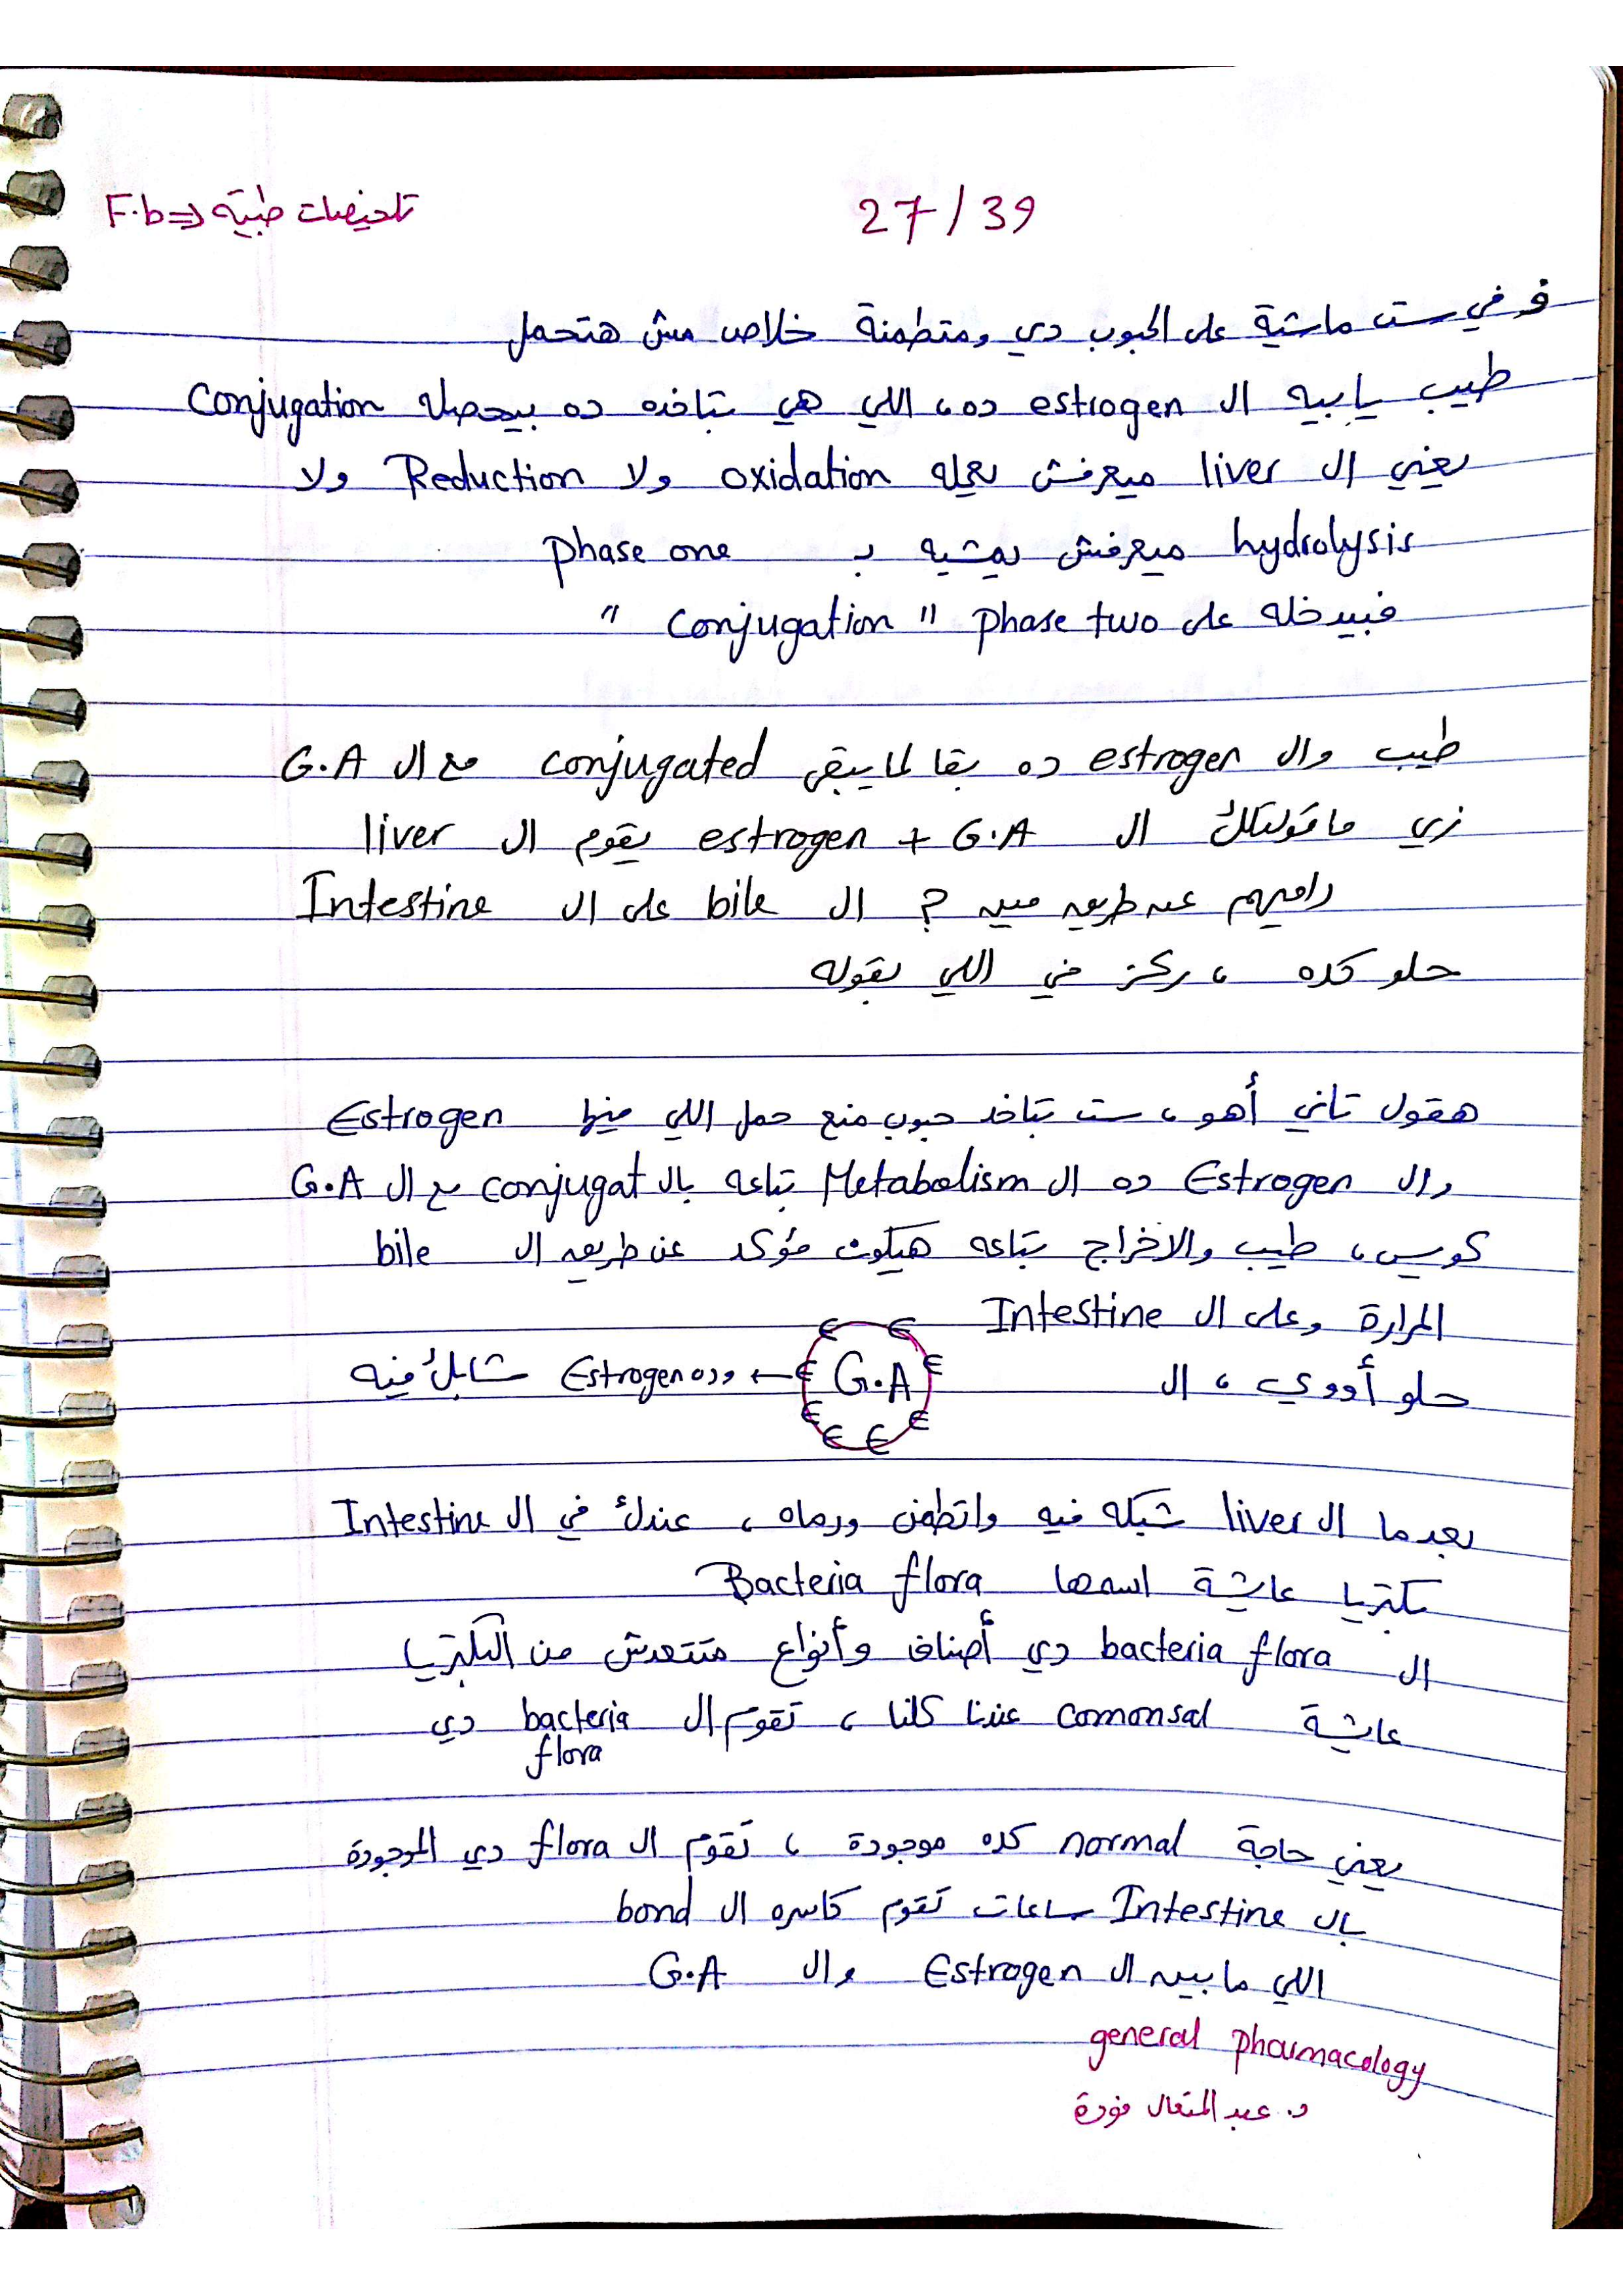 27/39
تلخيصات طبية <= F.b
ف في ست ماشية على الحبوب دي ومتطمنة خلاص مش هتحمل
طيب يا بيه ال estrogen ده، اللي هي بتاخده ده بيحصله conjugation
يعني ال liver ميعرفش يعمله oxidation ولا Reduction ولا
hydrolysis ميعرفش يمشيه ب phase one
فبيدخله على phase two " conjugation "
طيب وال estrogen ده بقا لما يبقى conjugated مع ال G.A
زي ما قولتلك ال estrogen + G.A يقوم ال liver
راميهم عن طريق مين ? ال bile على ال Intestine
حلو كده ، ركز في اللي بقوله
هقول تاني أهو ، ست بتاخد حبوب منع حمل اللي فيها Estrogen
وال Estrogen ده ال Metabolism بتاعه بال conjugat مع ال G.A
كويس، طيب والاخراج بتاعه هيكون مؤكد عن طريق ال bile
المرارة وعلى ال Intestine
حلو أووي ، ال G.A ← وده Estrogen شابك فيه
بعدما ال liver شبكه فيه واتطمن ورماه ، عندك في ال Intestine
بكتريا عايشة اسمها Bacteria flora
ال bacteria flora دي أصناف وأنواع متتعدش من البكتريا
عايشة comonsal عندنا كلنا ، تقوم ال bacteria دي
flora
يعني حاجة normal كده موجودة ، تقوم ال flora دي الموجودة
بال Intestine ساعات تقوم كاسره ال bond
اللي ما بين ال Estrogen وال G.A
general pharmacology
د. عبد المتعال فودة